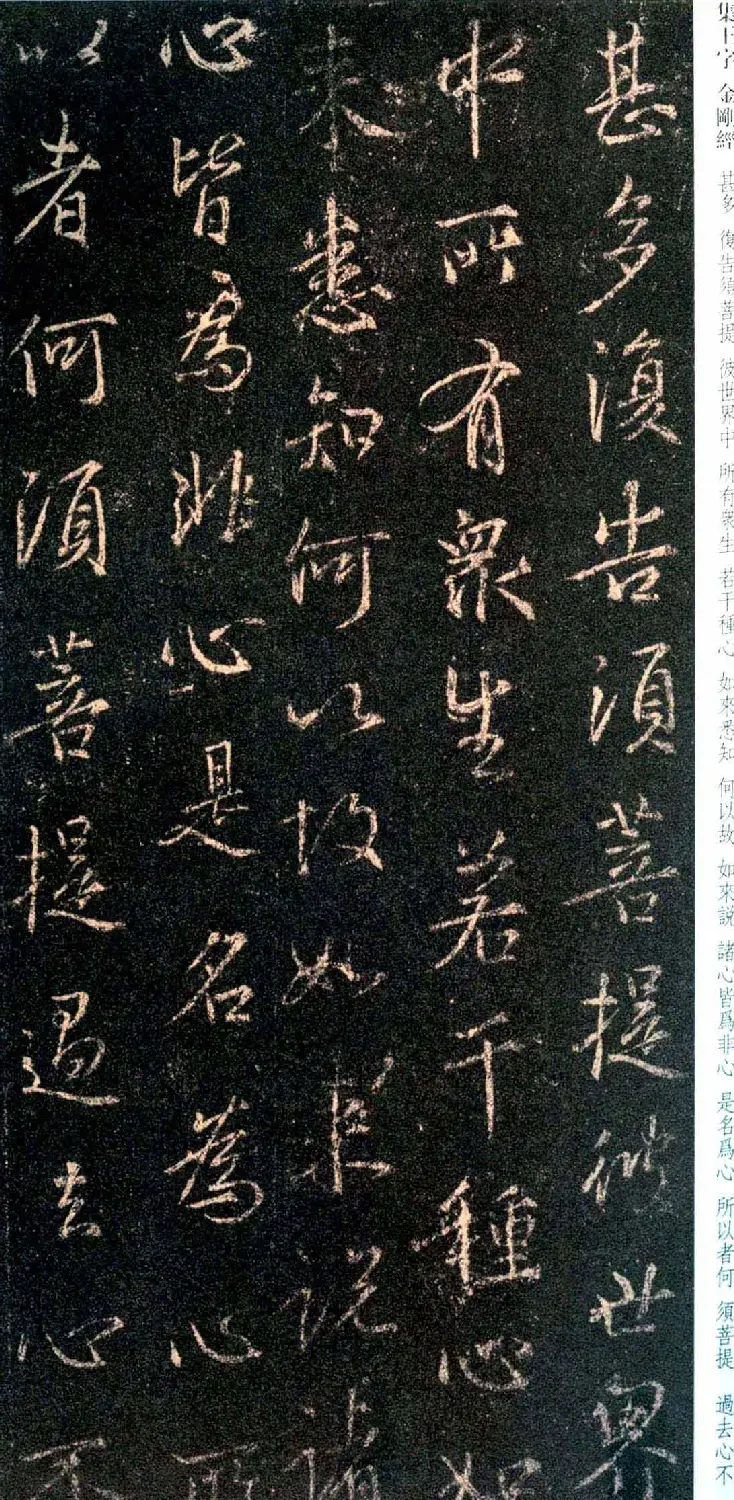 集王字 金剛經 甚多 復告須菩提 彼世界中 所有衆生 若干種心 如來悉知 何以故 如來説 諸心皆爲非心 是名爲心 所以者何 須菩提 過去心不
甚多復告須菩提彼世界
中所有衆生若干種心如
来悉知何以故如来説諸
心皆爲非心是名為心所
以者何須菩提過去心不